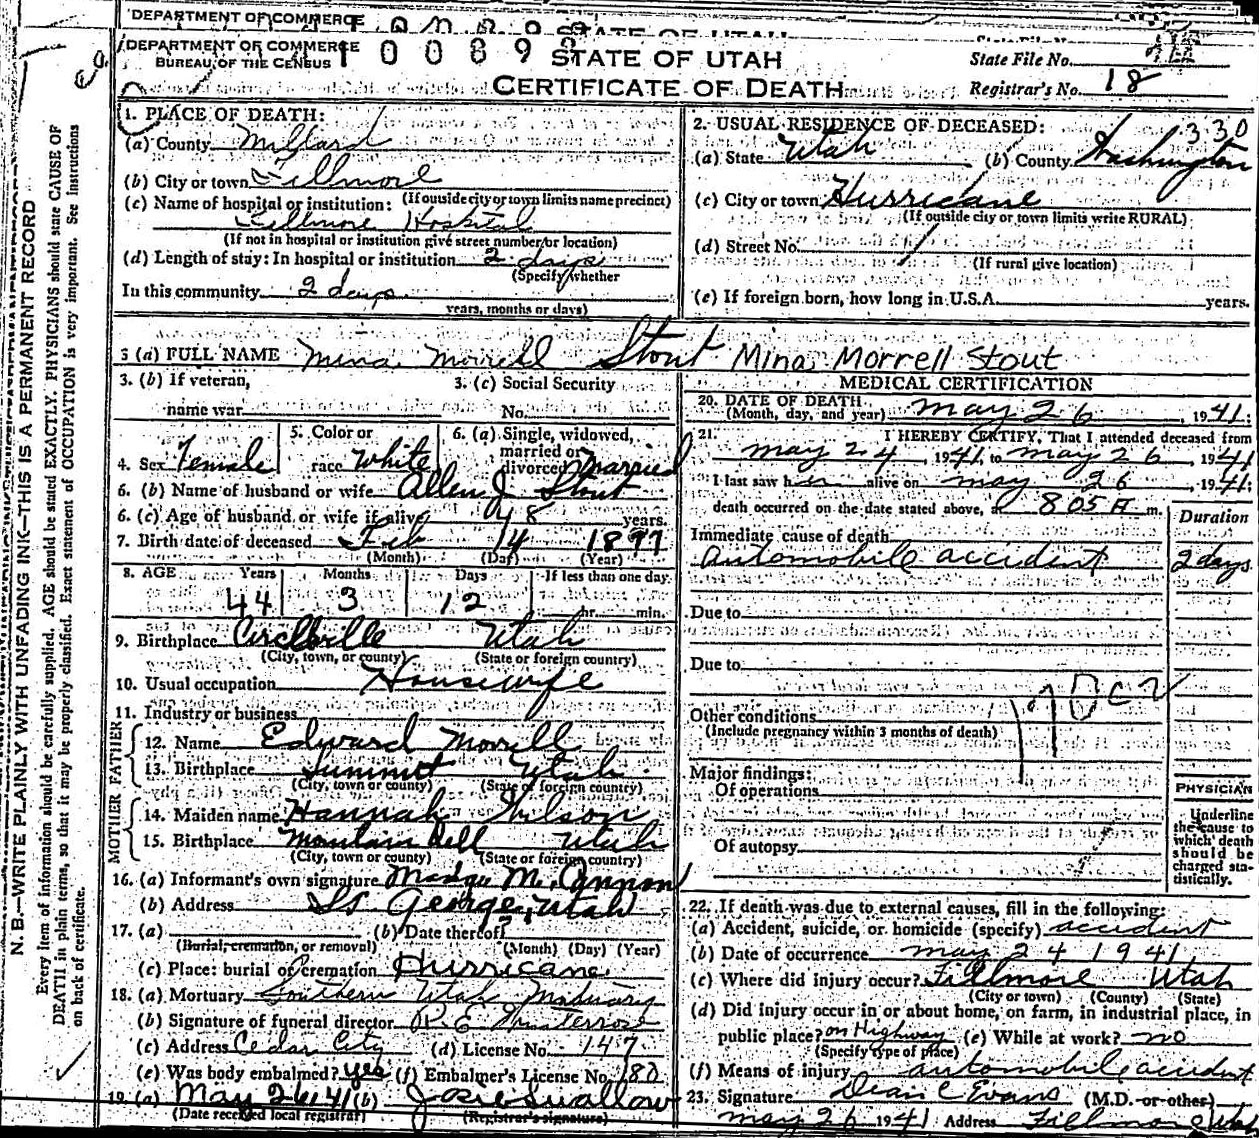 DEPARTMENT OF COMMERCE
DEPARTMENT OF COMMERCE
BUREAU OF THE CENSUS
STATE OF UTAH
CERTIFICATE OF DEATH
State File No.
Registrar's No. 18
1. PLACE OF DEATH:
(a) County Millard
(b) City or town Fillmore
(c) Name of hospital or institution: (If outside city or town limits name precinct)
Fillmore Hospital
(If not in hospital or institution give street number or location)
(d) Length of stay: In hospital or institution 2 days
(Specify whether
In this community 2 days
years, months or days)
2. USUAL RESIDENCE OF DECEASED: 330
(a) State Utah (b) County Washington
(c) City or town Hurricane
(If outside city or town limits write RURAL)
(d) Street No.
(If rural give location)
(e) If foreign born, how long in U.S.A. years.
3 (a) FULL NAME Mina Morrell Stout Mina Morrell Stout
3. (b) If veteran,
name war
3. (c) Social Security
No.
4. Sex Female
5. Color or
race White
6. (a) Single, widowed,
married or
divorced Married
6. (b) Name of husband or wife Allen J Stout
6. (c) Age of husband or wife if alive 48 years.
7. Birth date of deceased Feb 14 1897
(Month) (Day) (Year)
8. AGE Years Months Days If less than one day
44 3 12 hr. min.
9. Birthplace Circleville Utah
(City, town, or county) (State or foreign country)
10. Usual occupation Housewife
11. Industry or business
FATHER
12. Name Edward Morrill
13. Birthplace Summit Utah
(City, town or county) (State or foreign country)
MOTHER
14. Maiden name Hannah Wilson
15. Birthplace Mountain Dell Utah
(City, town or county) (State or foreign country)
16. (a) Informant's own signature Madge M.
(b) Address St George, Utah
17. (a) (b) Date thereof
(Burial, cremation, or removal) (Month) (Day) (Year)
(c) Place: burial or cremation Hurricane
18. (a) Mortuary Southern Utah Mortuary
(b) Signature of funeral director R. E.
(c) Address Cedar City (d) License No. 147
(e) Was body embalmed? yes (f) Embalmer's License No. 180
19. (a) May 26 41 (b) Josie Swallow
(Date received local registrar) (Registrar's signature)
MEDICAL CERTIFICATION
20. DATE OF DEATH
(Month, day, and year) May 26, 1941.
21. I HEREBY CERTIFY, That I attended deceased from
May 24, 1941, to May 26, 1941
I last saw her alive on May 26, 1941;
death occurred on the date stated above, at 805 A m.
Duration
Immediate cause of death
automobile accident 2 days
Due to
Due to
170c
Other conditions
(Include pregnancy within 3 months of death)
Major findings:
Of operations
Of autopsy
PHYSICIAN
Underline
the cause to
which death
should be
charged sta-
tistically.
22. If death was due to external causes, fill in the following:
(a) Accident, suicide, or homicide (specify) accident
(b) Date of occurrence May 24 1941
(c) Where did injury occur? Fillmore Utah
(City or town) (County) (State)
(d) Did injury occur in or about home, on farm, in industrial place, in
public place? on Highway (e) While at work? no
(Specify type of place)
(f) Means of injury automobile accident
23. Signature Dean C Evans (M.D. or other)
May 26 1941 Address Fillmore Utah
N. B.—WRITE PLAINLY WITH UNFADING INK—THIS IS A PERMANENT RECORD
Every item of information should be carefully supplied. AGE should be stated EXACTLY. PHYSICIANS should state CAUSE OF
DEATH in plain terms, so that it may be properly classified. Exact statement of OCCUPATION is very important. See instructions
on back of certificate.